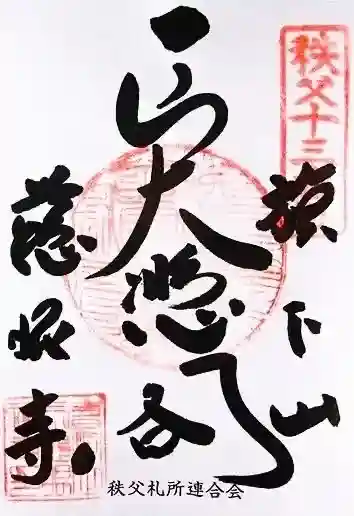 秩父十三
旗下山
大悲閣
慈眼寺
秩父札所連合会